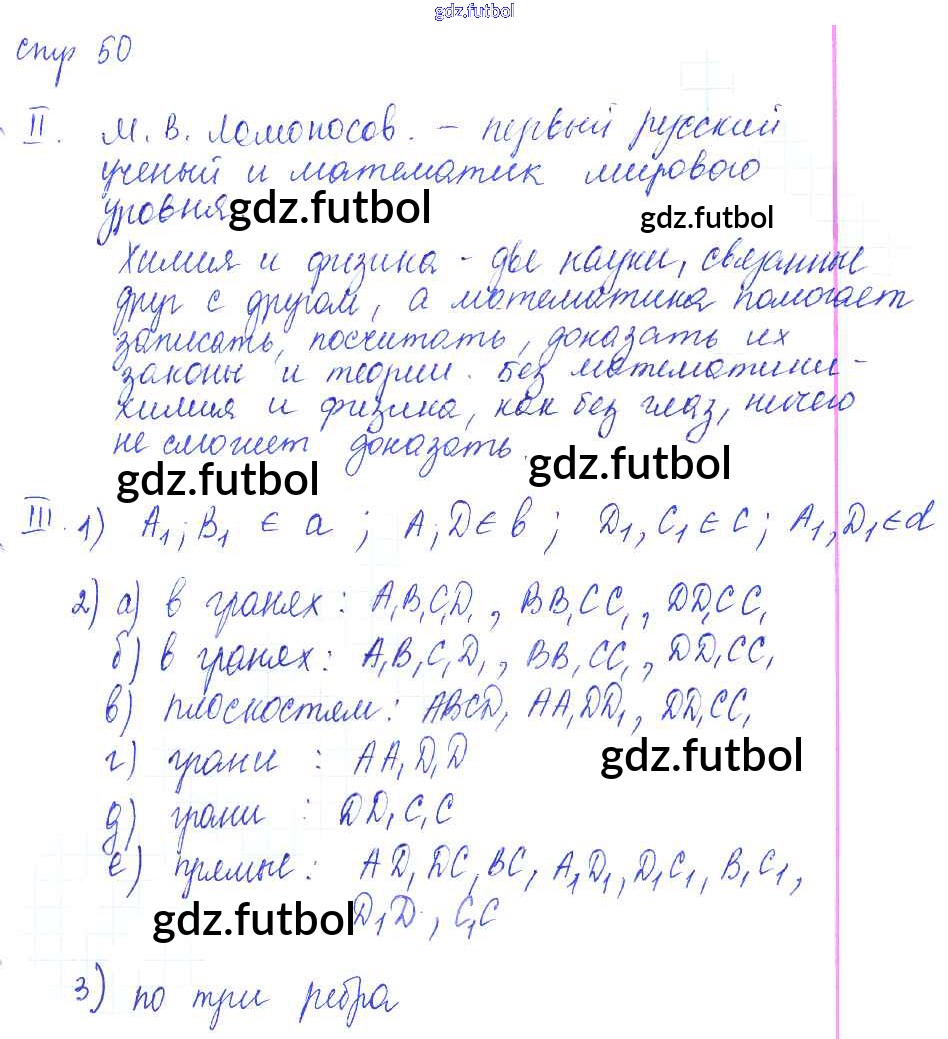 gdz.futbol
стр 50
II. М. В. Ломоносов. - первый русский
ученый и математик мирового
уровня
gdz.futbol
gdz.futbol
Химия и физика - две науки, связанные
друг с другом, а математика помогает
записать, посчитать, доказать их
законы и теории. Без математики -
химия и физика, как без глаз, ничего
не сможет доказать.
gdz.futbol
gdz.futbol
III. 1) A₁; B₁ ∈ a ; A; D ∈ b ; D₁, C₁ ∈ c ; A₁, D₁ ∈ d
2) а) в гранях: A₁B₁C₁D₁, BB₁CC₁, DD₁CC₁
б) в гранях: A₁B₁C₁D₁, BB₁CC₁, DD₁CC₁
в) плоскостям: ABCD, AA₁DD₁, DD₁CC₁
г) грани : AA₁D₁D
gdz.futbol
д) грани : DD₁C₁C
е) прямые: AD, DC, BC, A₁D₁, D₁C₁, B₁C₁,
gdz.futbol
D₁D , C₁C
3) по три ребра